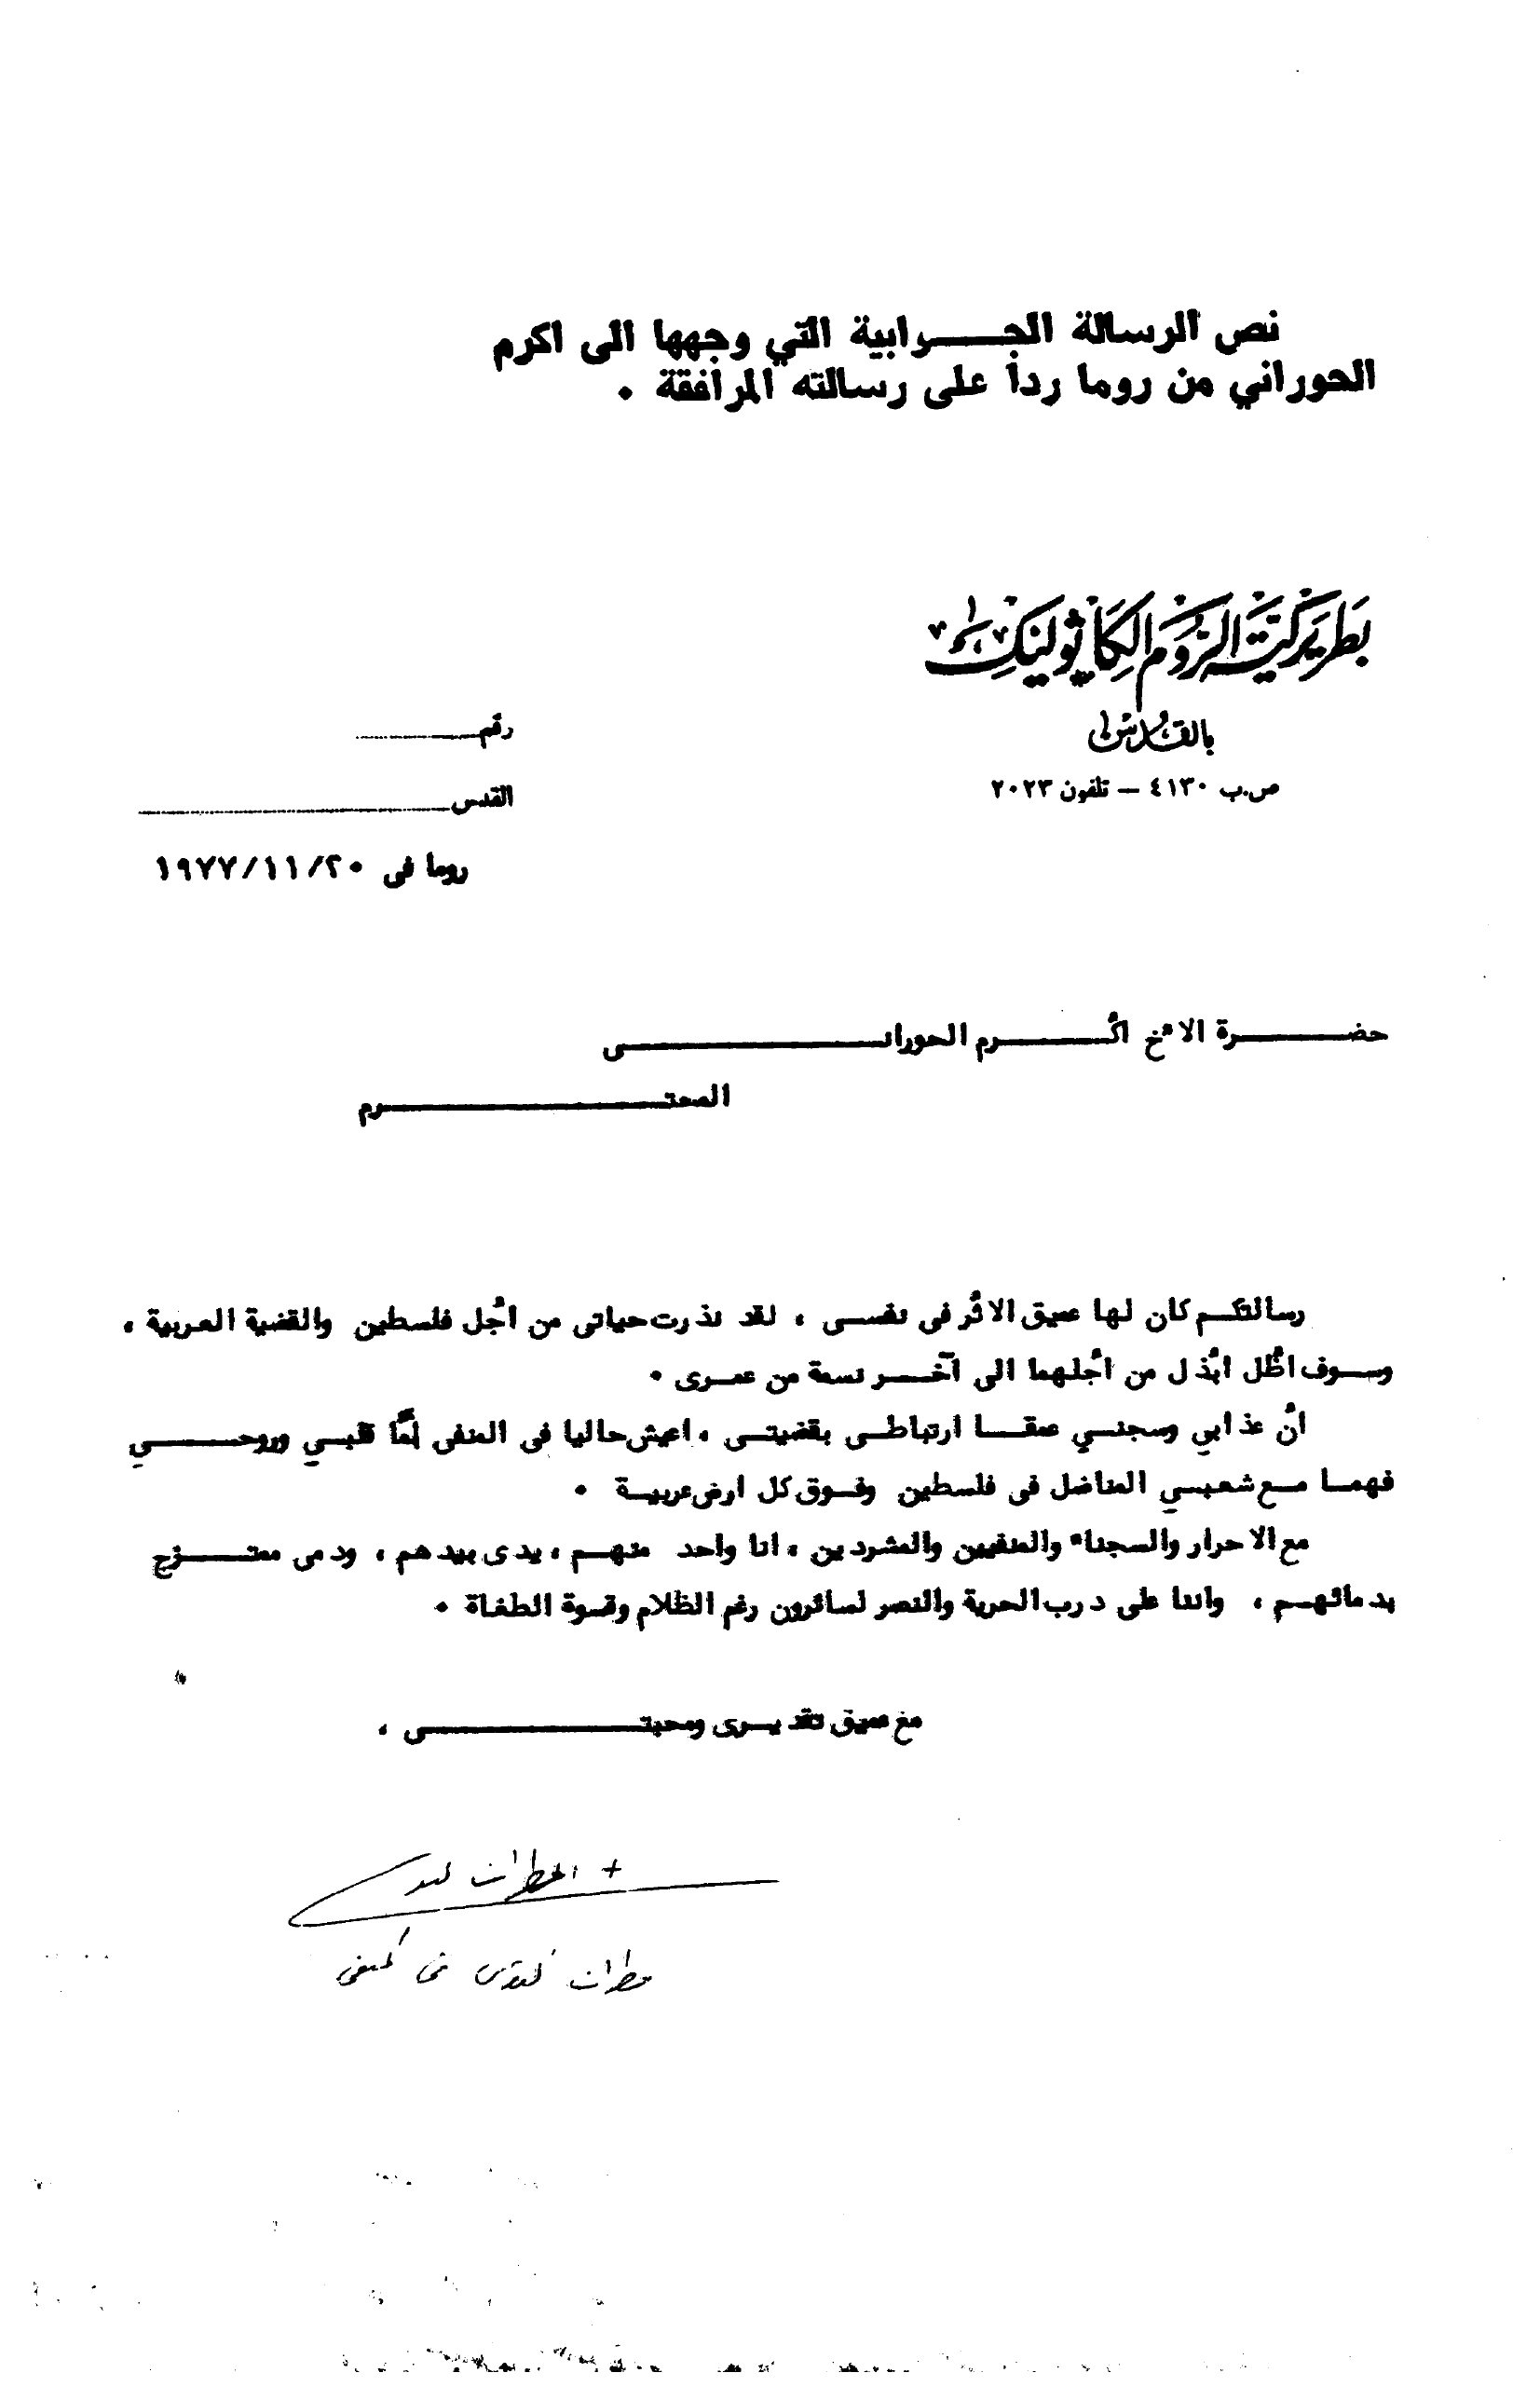 نص الرسالة الجـــوابية التي وجهها الى اكرم
الحوراني من روما رداً على رسالته المرافقة ٠
بَطريَركيّة الرّوم الكاثوليك
بالقدس
ص.ب ٤١٣٠ — تلفون ٢٠٢٣
رقم
القدس
روما فى ١٩٧٧/١١/٢٠
حضـــــرة الأخ أكـــــرم الحورانـــــى
المحتـــــرم
رسالتكـم كان لها عميق الاثر فى نفسـى ، لقد نذرت حياتى من أجل فلسطين والقضية العربية ،
وسـوف أظل أبذل من أجلهما الى آخـر نسمة من عمـرى ٠
انّ عذابي وسجنـي عمقـا ارتباطـى بقضيتـى ، اعيش حاليا فى المنفى أمّا قلبـي وروحـــي
فهمـا مـع شعبـي المناضل فى فلسطين وفـوق كل ارض عربيـة ٠
مع الاحرار والسجناء والمنفيين والمشردين ، انا واحد منهـم ، يدى بيدهم ، ودمى ممتـــزج
بدمائهـم ، واننا على درب الحرية والنصر لسائرون رغم الظلام وقسوة الطغاة ٠
مع عميق تقديـرى ومحبتـــــى ،
+ المطران
مطران القدس في المنفى